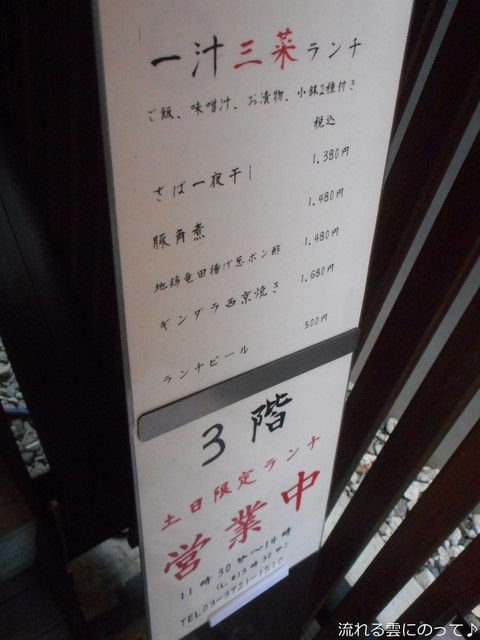 一汁三菜ランチ
ご飯、味噌汁、お漬物、小鉢2種付き
税込
さば一夜干し 1.380円
豚角煮 1.480円
地鶏竜田揚げ葱ポン酢 1.480円
ギンダラ西京焼き 1.680円
ランチビール 500円
3階
土日限定ランチ
営業中
11時30分〜14時
(L.o13時30分)
TEL03-3721-1510
流れる雲にのって♪